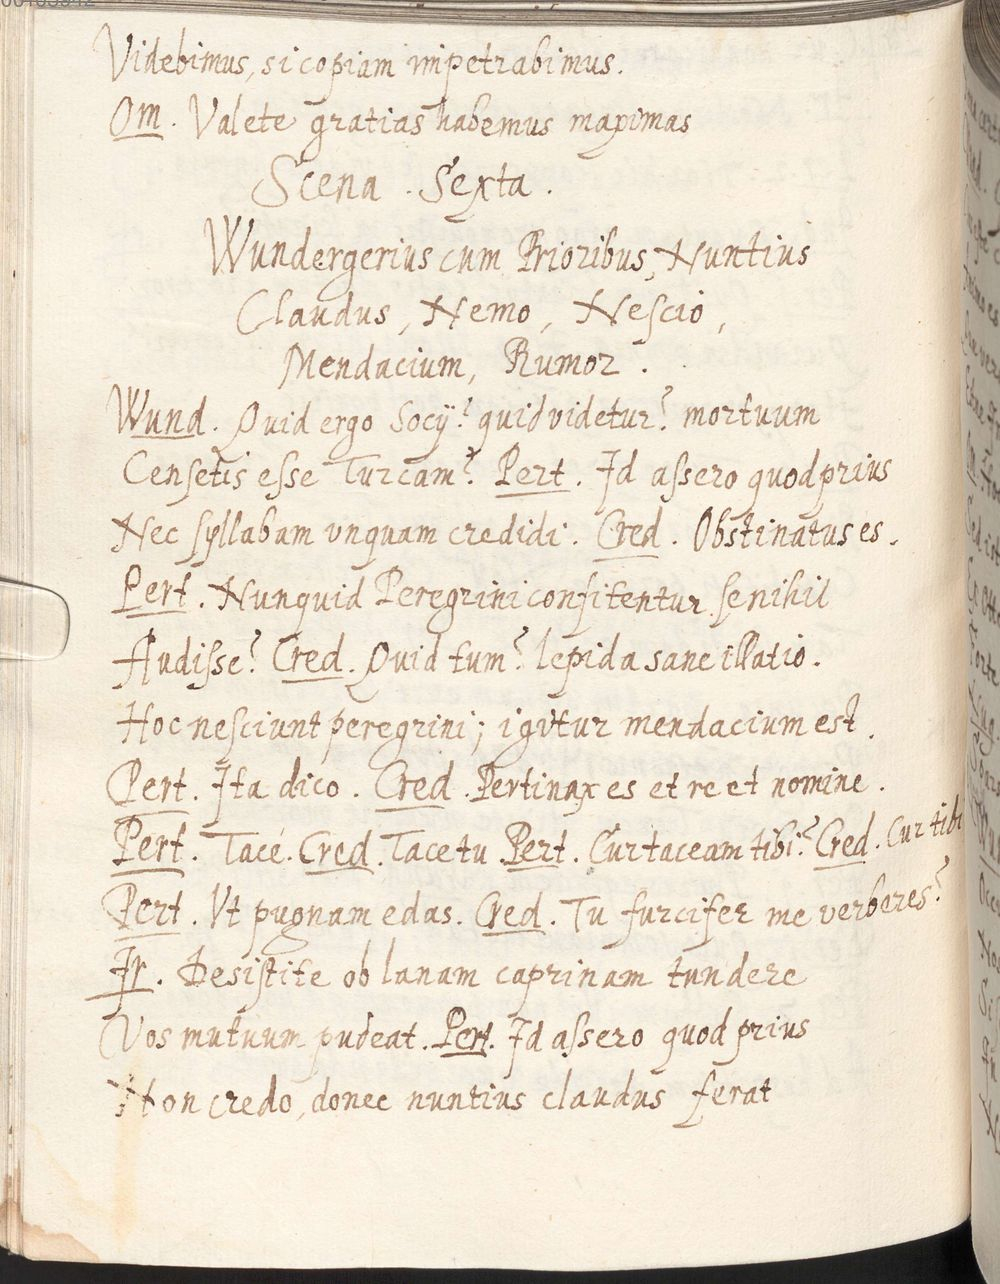 Videbimus, si copiam impetrabimus.
Om. Valete gratias habemus maximas
Scena. Sexta.
Wundergerius cum Prioribus, Nuntius
Claudus, Nemo, Neſcio,
Mendacium, Rumor.
Wund. Quid ergo Socÿ? quid videtur? mortuum
Cenſetis eſse Turcam? Pert. Id aſsero quod prius
Nec ſyllabam vnquam credidi. Cred. Obstinatus es.
Pert. Nunquid Peregrini confitentur ſe nihil
Audiſse? Cred. Quid tum? lepida sane illatio.
Hoc neſciunt peregrini; igitur mendacium est.
Pert. Ita dico. Cred. Pertinax es et re et nomine.
Pert. Tace. Cred. Tace tu Pert. Cur taceam tibi? Cred. Cur tibi
Pert. Vt pugnam edas. Cred. Tu furcifer me verberes?
Ir. Desiſtite ob lanam caprinam tundere
Vos mutuum pudeat. Pert. Id aſsero quod prius
Non credo, donec nuntius claudus ferat